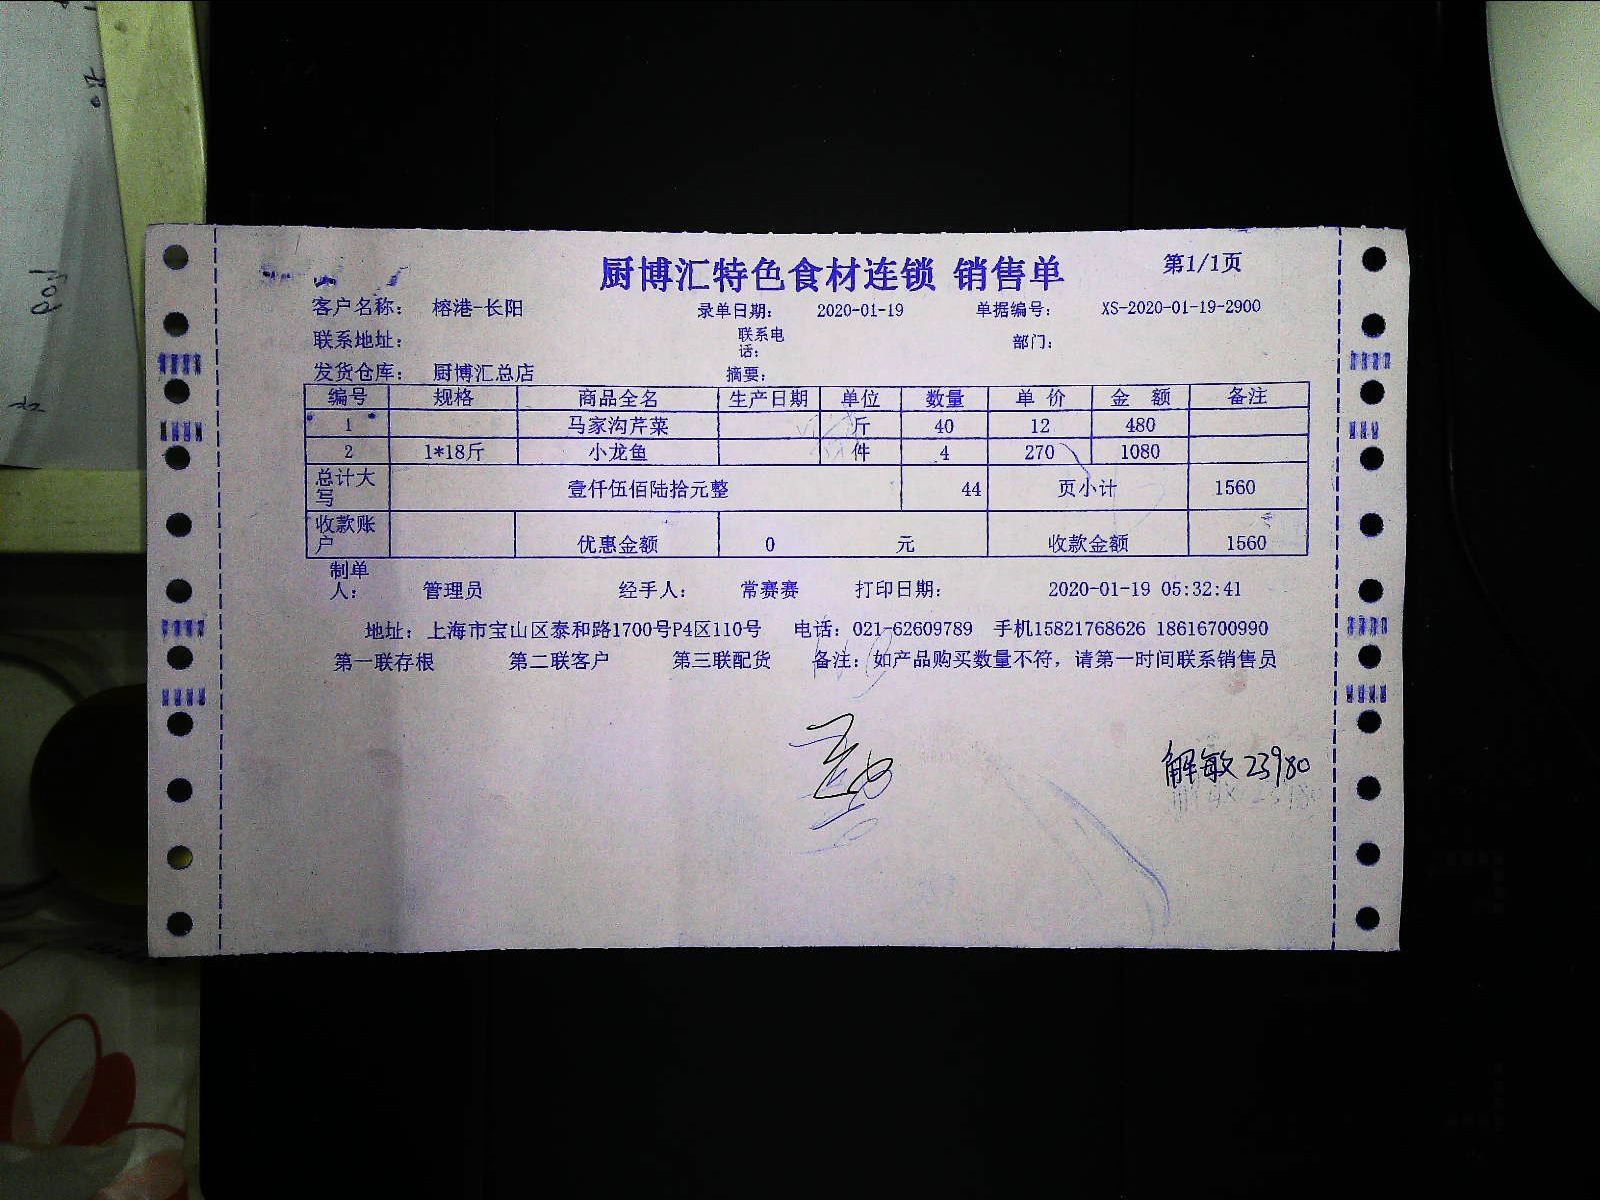 厨博汇特色食材连锁 销售单 第1/1页
客户名称: 榕港-长阳 录单日期: 2020-01-19 单据编号: XS-2020-01-19-2900
联系地址: 联系电话: 部门:
发货仓库: 厨博汇总店 摘要:
编号 规格 商品全名 生产日期 单位 数量 单 价 金 额 备注
1 马家沟芹菜 斤 40 12 480
2 1*18斤 小龙鱼 件 4 270 1080
总计大写 壹仟伍佰陆拾元整 44 页小计 1560
收款账户 优惠金额 0 元 收款金额 1560
制单人: 管理员 经手人: 常赛赛 打印日期: 2020-01-19 05:32:41
地址: 上海市宝山区泰和路1700号P4区110号 电话: 021-62609789 手机15821768626 18616700990
第一联存根 第二联客户 第三联配货 备注: 如产品购买数量不符, 请第一时间联系销售员
解敏 23980